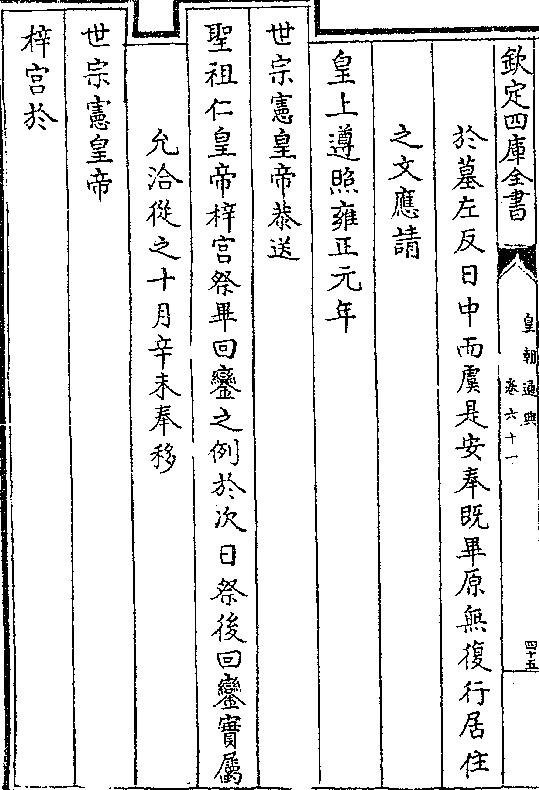 欽定四庫全書
皇朝通典
卷六十一
四十五
於墓左反日中而虞是安奉既畢原無復行居住
之文應請
皇上遵照雍正元年
世宗憲皇帝恭送
聖祖仁皇帝梓宮祭畢回鑾之例於次日祭後回鑾實屬
允洽從之十月辛未奉移
世宗憲皇帝
梓宮於